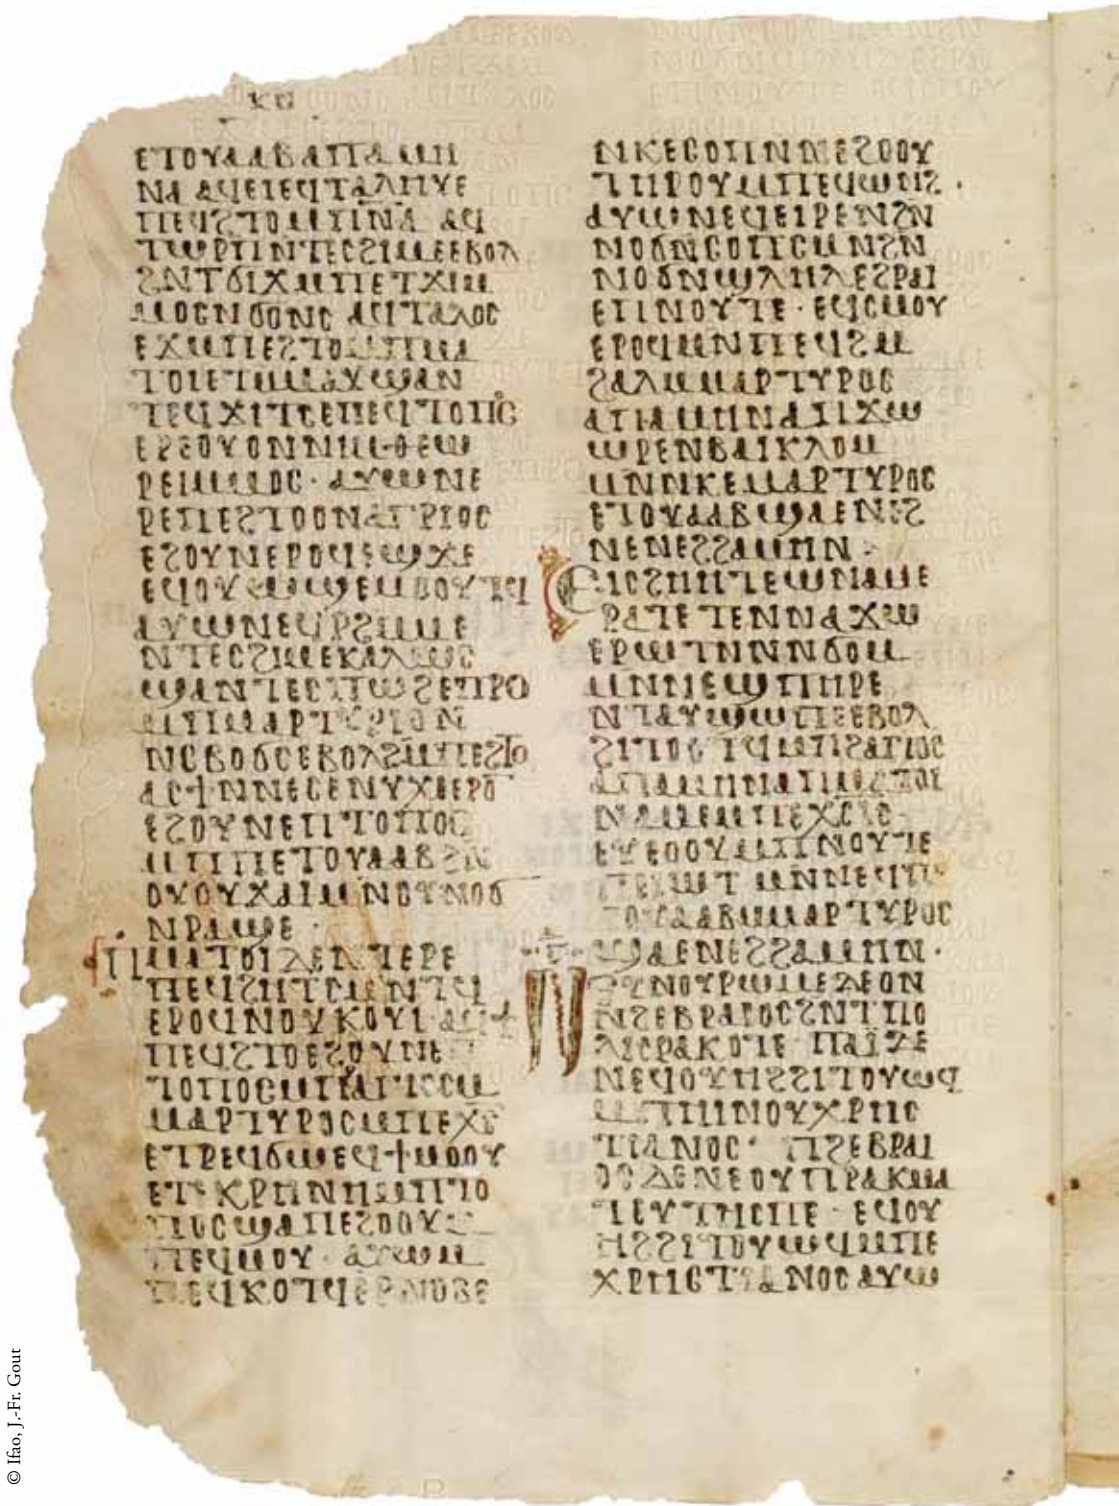 ⲕⲏ
ⲉⲧⲟⲩⲁⲁⲃⲁⲡⲁⲙⲏ
ⲛⲁ ⲁϥⲉⲓⲉϥⲧⲁⲗⲏⲩⲉ
ⲡⲉϥϩⲧⲟⲙⲡⲓⲛⲁ ⲁϥ
ⲧⲱⲣⲡⲛⲧⲉⲥϩⲓⲙⲉⲉⲃⲟⲗ
ϩⲛⲧϭⲓϫⲙⲡⲉⲧϫⲓⲙ
ⲙⲟⲥⲛϭⲟⲛⲥ ⲁϥⲧⲁⲗⲟⲥ
ⲉϫⲙⲡⲉϩⲧⲟⲙⲡⲙⲁ
ⲧⲟⲓⲉⲧⲙⲙⲁⲩϣⲁⲛ
ⲧⲉϥϫⲓⲧⲥⲉⲡⲉϥⲧⲟⲡⲟⲥ
ⲉⲣⲉⲟⲩⲟⲛⲛⲓⲙ·ⲑⲉⲱ
ⲣⲉⲓⲙⲙⲟⲥ· ⲁⲩⲱⲛⲉ
ⲣⲉⲡⲉϩⲧⲟⲟⲛⲁⲅⲣⲓⲟⲥ
ⲉϩⲟⲩⲛⲉⲣⲟϥⲉϣϫⲉ
ⲁⲩⲱⲛⲉϥⲣϩⲙⲙⲉ
ⲛⲧⲉⲥϩⲓⲙⲉⲕⲁⲗⲱⲥ
ϣⲁⲛⲧⲉϥⲧⲱϩⲉⲡⲣⲟ
ⲙⲡⲙⲁⲣⲧⲩⲣⲓⲟⲛ
ⲛⲥⲃⲟϭⲥⲉⲃⲟⲗϩⲙⲡⲉϩⲧⲟ
ⲁⲥϯⲛⲛⲉⲥⲉⲛⲩⲭⲉⲉⲣⲟ
ⲉϩⲟⲩⲛⲉⲡⲧⲟⲡⲟⲥ
ⲙⲡⲡⲉⲧⲟⲩⲁⲁⲃϩⲛ
ⲟⲩⲟⲩϫⲁⲓⲙⲛⲟⲩⲛⲟϭ
ⲛⲣⲁϣⲉ·
ⲡⲙⲁⲧⲟⲓⲇⲉⲛⲧⲉⲣⲉ
ⲡⲉϥϩⲏⲧⲥⲙⲛⲧϥ
ⲉⲣⲟϥⲛⲟⲩⲕⲟⲩⲓ ⲁϥϯ
ⲡⲉϥϩⲧⲟⲉϩⲟⲩⲛⲉ
ⲧⲟⲡⲟⲥⲙⲡϩⲁⲅⲓⲟⲥⲙ
ⲙⲁⲣⲧⲩⲣⲟⲥⲙⲡⲉⲭⲥ
ⲉⲧⲣⲉϥϭⲱⲉϥϯⲙⲟⲟⲩ
ⲉⲧⲉⲕⲣⲏⲛⲏⲙⲡⲧⲟ
ⲡⲟⲥϣⲁⲡⲉϩⲟⲟⲩⲙ
ⲡⲉϥⲙⲟⲩ· ⲁⲩⲱⲙ
ⲡⲉϥⲕⲟⲧϥⲉⲣⲛⲟⲃⲉ
ⲛⲕⲉⲥⲟⲡⲛⲛⲉϩⲟⲟⲩ
ⲧⲏⲣⲟⲩⲙⲡⲉϥⲱⲛϩ·
ⲁⲩⲱⲛⲉϥⲉⲓⲣⲉⲛϩⲛ
ⲛⲟϭⲛⲥⲟⲡⲥⲙⲛϩⲛ
ⲛⲟϭⲛϣⲗⲏⲗⲉϩⲣⲁⲓ
ⲉⲡⲛⲟⲩⲧⲉ· ⲉϥⲥⲙⲟⲩ
ⲉⲣⲟϥⲙⲛⲡⲉϥϩⲁ
ϩⲁⲗⲙⲙⲁⲣⲧⲩⲣⲟⲥ
ⲁⲡⲁⲙⲏⲛⲁⲡϫⲱ
ⲱⲣⲉⲛⲃⲁⲓⲕⲗⲟⲙ
ⲙⲛⲛⲕⲉⲙⲁⲣⲧⲩⲣⲟⲥ
ⲉⲧⲟⲩⲁⲁⲃϣⲁⲉⲛⲉϩ
ⲛⲉⲛⲉϩϩⲁⲙⲏⲛ
ⲉⲓⲥϩⲏⲏⲧⲉⲱⲛⲁⲙⲉ
ⲣⲁⲧⲉ ⲧⲉⲛⲛⲁϫⲱ
ⲉⲣⲱⲧⲛⲛⲛϭⲟⲙ
ⲙⲛⲛⲉϣⲡⲏⲣⲉ
ⲛⲧⲁⲩϣⲱⲡⲉⲉⲃⲟⲗ
ϩⲓⲧⲟⲟⲧϥⲙⲡϩⲁⲅⲓⲟⲥ
ⲁⲡⲁⲙⲏⲛⲁⲡⲙⲁⲧⲟⲓ
ⲛⲁⲙⲉⲙⲡⲉⲭⲥ
ⲉⲩⲉⲟⲟⲩⲙⲡⲛⲟⲩⲧⲉ
ⲡⲉⲓⲱⲧ ⲙⲛⲛⲉϥⲡⲉ
ⲧⲟⲩⲁⲁⲃⲙⲙⲁⲣⲧⲩⲣⲟⲥ
ϣⲁⲉⲛⲉϩϩⲁⲙⲏⲛ·
ⲛⲉⲩⲛⲟⲩⲣⲱⲙⲉⲇⲉⲟⲛ
ⲛϩⲉⲃⲣⲁⲓⲟⲥϩⲛⲧⲡⲟ
ⲗⲓⲥⲣⲁⲕⲟⲧⲉ ⲡⲁⲓⲇⲉ
ⲛⲉϥⲟⲩⲏϩϩⲓⲧⲟⲩⲱϥ
ⲙⲡⲏⲓⲛⲟⲩⲭⲣⲏⲥ
ⲧⲓⲁⲛⲟⲥ· ⲡϩⲉⲃⲣⲁⲓ
ⲟⲥⲇⲉⲛⲉⲟⲩⲡⲣⲁⲕⲙⲁ
ⲧⲉⲩⲧⲏⲥⲡⲉ· ⲉϥⲟⲩ
ⲏϩϩⲓⲧⲟⲩⲱϥⲙⲡⲉ
ⲭⲣⲏⲥⲧⲓⲁⲛⲟⲥⲁⲩⲱ
© Ifao, J.-Fr. Gout